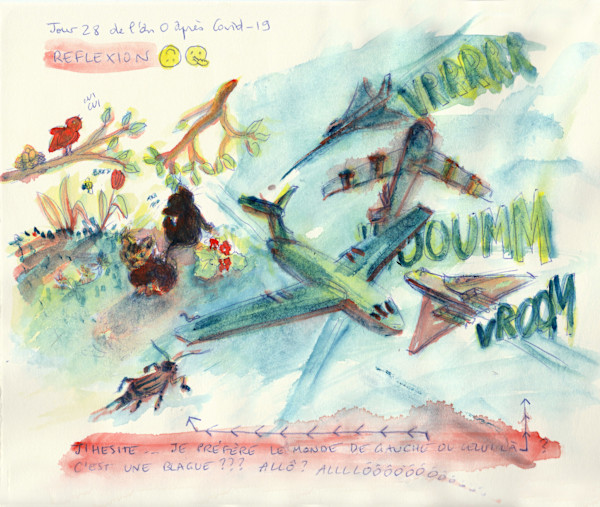 Jour 28 de l'an 0 après Covid-19
REFLEXION
CUI CUI
BZZZ
VRRRRR
JOUMM
VROOM
J'HESITE... JE PRÉFÈRE LE MONDE DE GAUCHE OU CELUI LÀ ?
C'EST UNE BLAGUE??? ALLÔ? ALLLLÔÔÔÔÔÔÔ